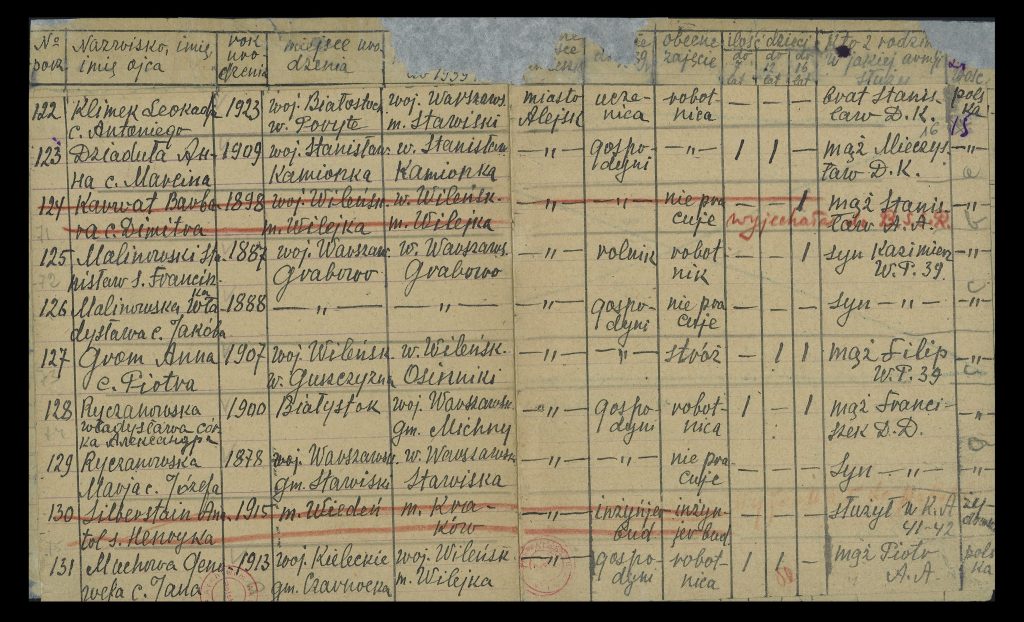 № porz. Nazwisko, imię imię ojca rok uro dzenia miejsce uro dzenia do 1939 obecne zajęcie ilość dzieci do lat do lat do 16 lat Kto z rodziny w jakiej armji służy
122 Klimek Leokadja 1923 woj. Białostock. woj. Warszaws. miasto ucze- robot- — — — brat Stanis- pols
c. Antoniego w. Poryte m. Stawiski Alejsk nica nica ław D.K. ka
15
16
123 Dziaduła An- 1909 woj. Stanisław. w. Stanisław. —„— gospo- —„— 1 1 — mąż Mieczys- —„—
na c. Marcina Kamionka Kamionka dyni ław D.K.
124 Karwat Barba- 1898 woj. Wileńsk. w. Wileńsk. —„— —„— nie pra — — 1 mąż Stanis-
ra c. Dimitra m. Wilejka m. Wilejka cuje wyjechała ław A.A.
125 Malinowski Sta- 1887 woj. Warszaw. w. Warszaws. —„— rolnik robot — — 1 syn Kazimierz
nisław s. Francisz. Grabowo Grabowo nik W.P. 39.
126 Malinowska Wła 1888 —„— „ —„— gospo- nie pra — — — syn —„— —„—
dysława c. Jakóba dyni cuje
127 Grom Anna 1907 woj. Wileńsk. w. Wileńsk. —„— —„— stróż — 1 1 mąż Filip —„—
c. Piotra w. Guszczyzna Osinniki W.P. 39
128 Ryczanowska 1900 Białystok woj. Warszawsk. —„— gospo- robot- 1 — 1 mąż Franci- —„—
władysława cór gm. Michny dyni nica szek D.D.
ka Александра
129 Ryczanowska 1878 woj. Warszawsk. w. Warszawsk. —„— —„— nie pra — — — syn —„— —„—
Marja c. Józefa gm. Stawiski Stawiska cuje
130 Silberstain Ana 1915 m. Wiedeń m. Kra- —„— inżynjer inżyn- — — — służył w K.A
tol s. Henryka ków bud jer bud 41-42
131 Machowa Geno- 1913 woj. Kieleckie woj. Wileńsk. —„— gospo- robot- 1 1 — mąż Piotr pols
wefa c. Jana gm. Czarnocka m. Wilejka dyni nica A.A. ka